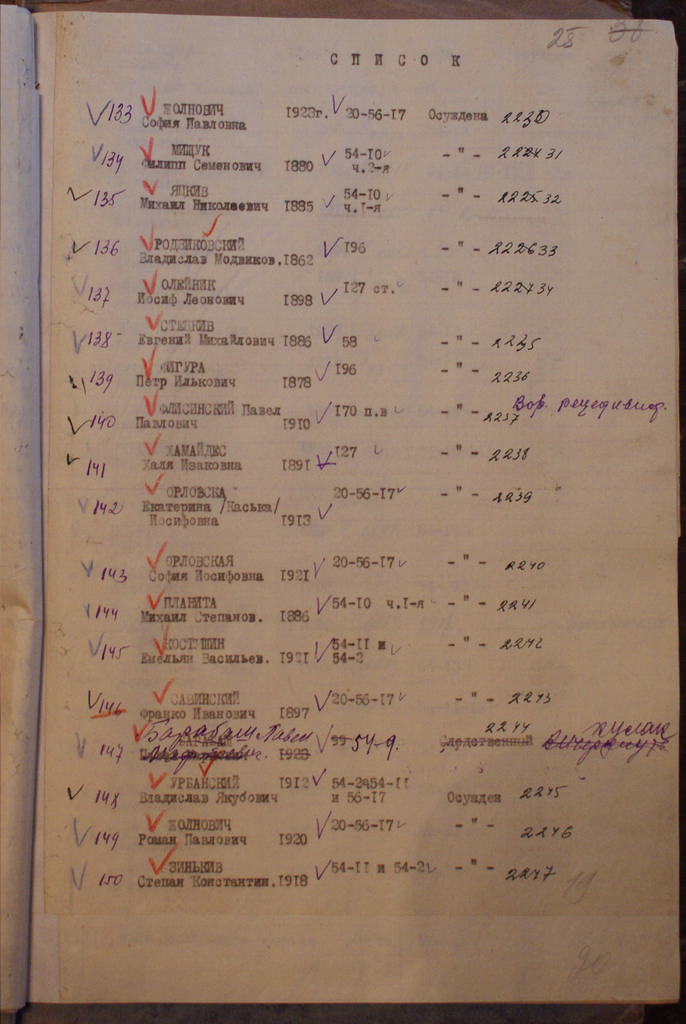 28 30
СПИСОК
133 ЖОЛНОВИЧ 1923г. 20-56-17 Осуждена 2230
София Павловна
134 МИЩУК 54-10 -"- 31
Филипп Семенович 1880 ч.2-я
135 ЯЦКИВ 54-10 -"- 32
Михаил Николаевич 1885 ч.I-я
136 РОДЗИКОВСКИЙ 196 -"- 33
Владислав Модвиков. 1862
137 ОЛЕЙНИК 127 ст. -"- 34
Иосиф Леонович 1898
138 СТЕЦКИВ
Евгений Михайлович 1886 58 -"- 2235
139 ФИГУРА 196 -"- 2236
Петр Илькович 1878
Вор. рецедивист.
140 ФЛИСИНСКИЙ Павел 170 п.в -"- 2237
Павлович 1910
141 ХАМАЙДЕС 127 -"- 2238
Халя Изаковна 1891
142 ОРЛОВСКА 20-56-17 -"- 2239 "
Екатерина /Каська/
Иосифовна 1913
143 ОРЛОВСКАЯ 20-56-17 -"- 2240
София Иосифовна 1921
144 ПЛАНИТА 54-10 ч.I-я -"- 2241
Михаил Степанов. 1886
145 КОСТЮШИН 54-II и -"- 2242
Емельян Васильев. 1921 54-2
146 САВИНСКИЙ 20-56-17 -"- 2243
Франко Иванович 1897
147 Барабаш Павел 54-9. 2244 кулак
1923 99 Следственный
148 УРБАНСКИЙ 1912 54-2а54-II
Владислав Якубович и 56-17 Осужден 2245
149 ЖОЛНОВИЧ 20-56-17 -"- 2246
Роман Павлович 1920
150 ЗИНЬКИВ 54-II и 54-2 -"- 2247
Степан Константин. 1918
19
20